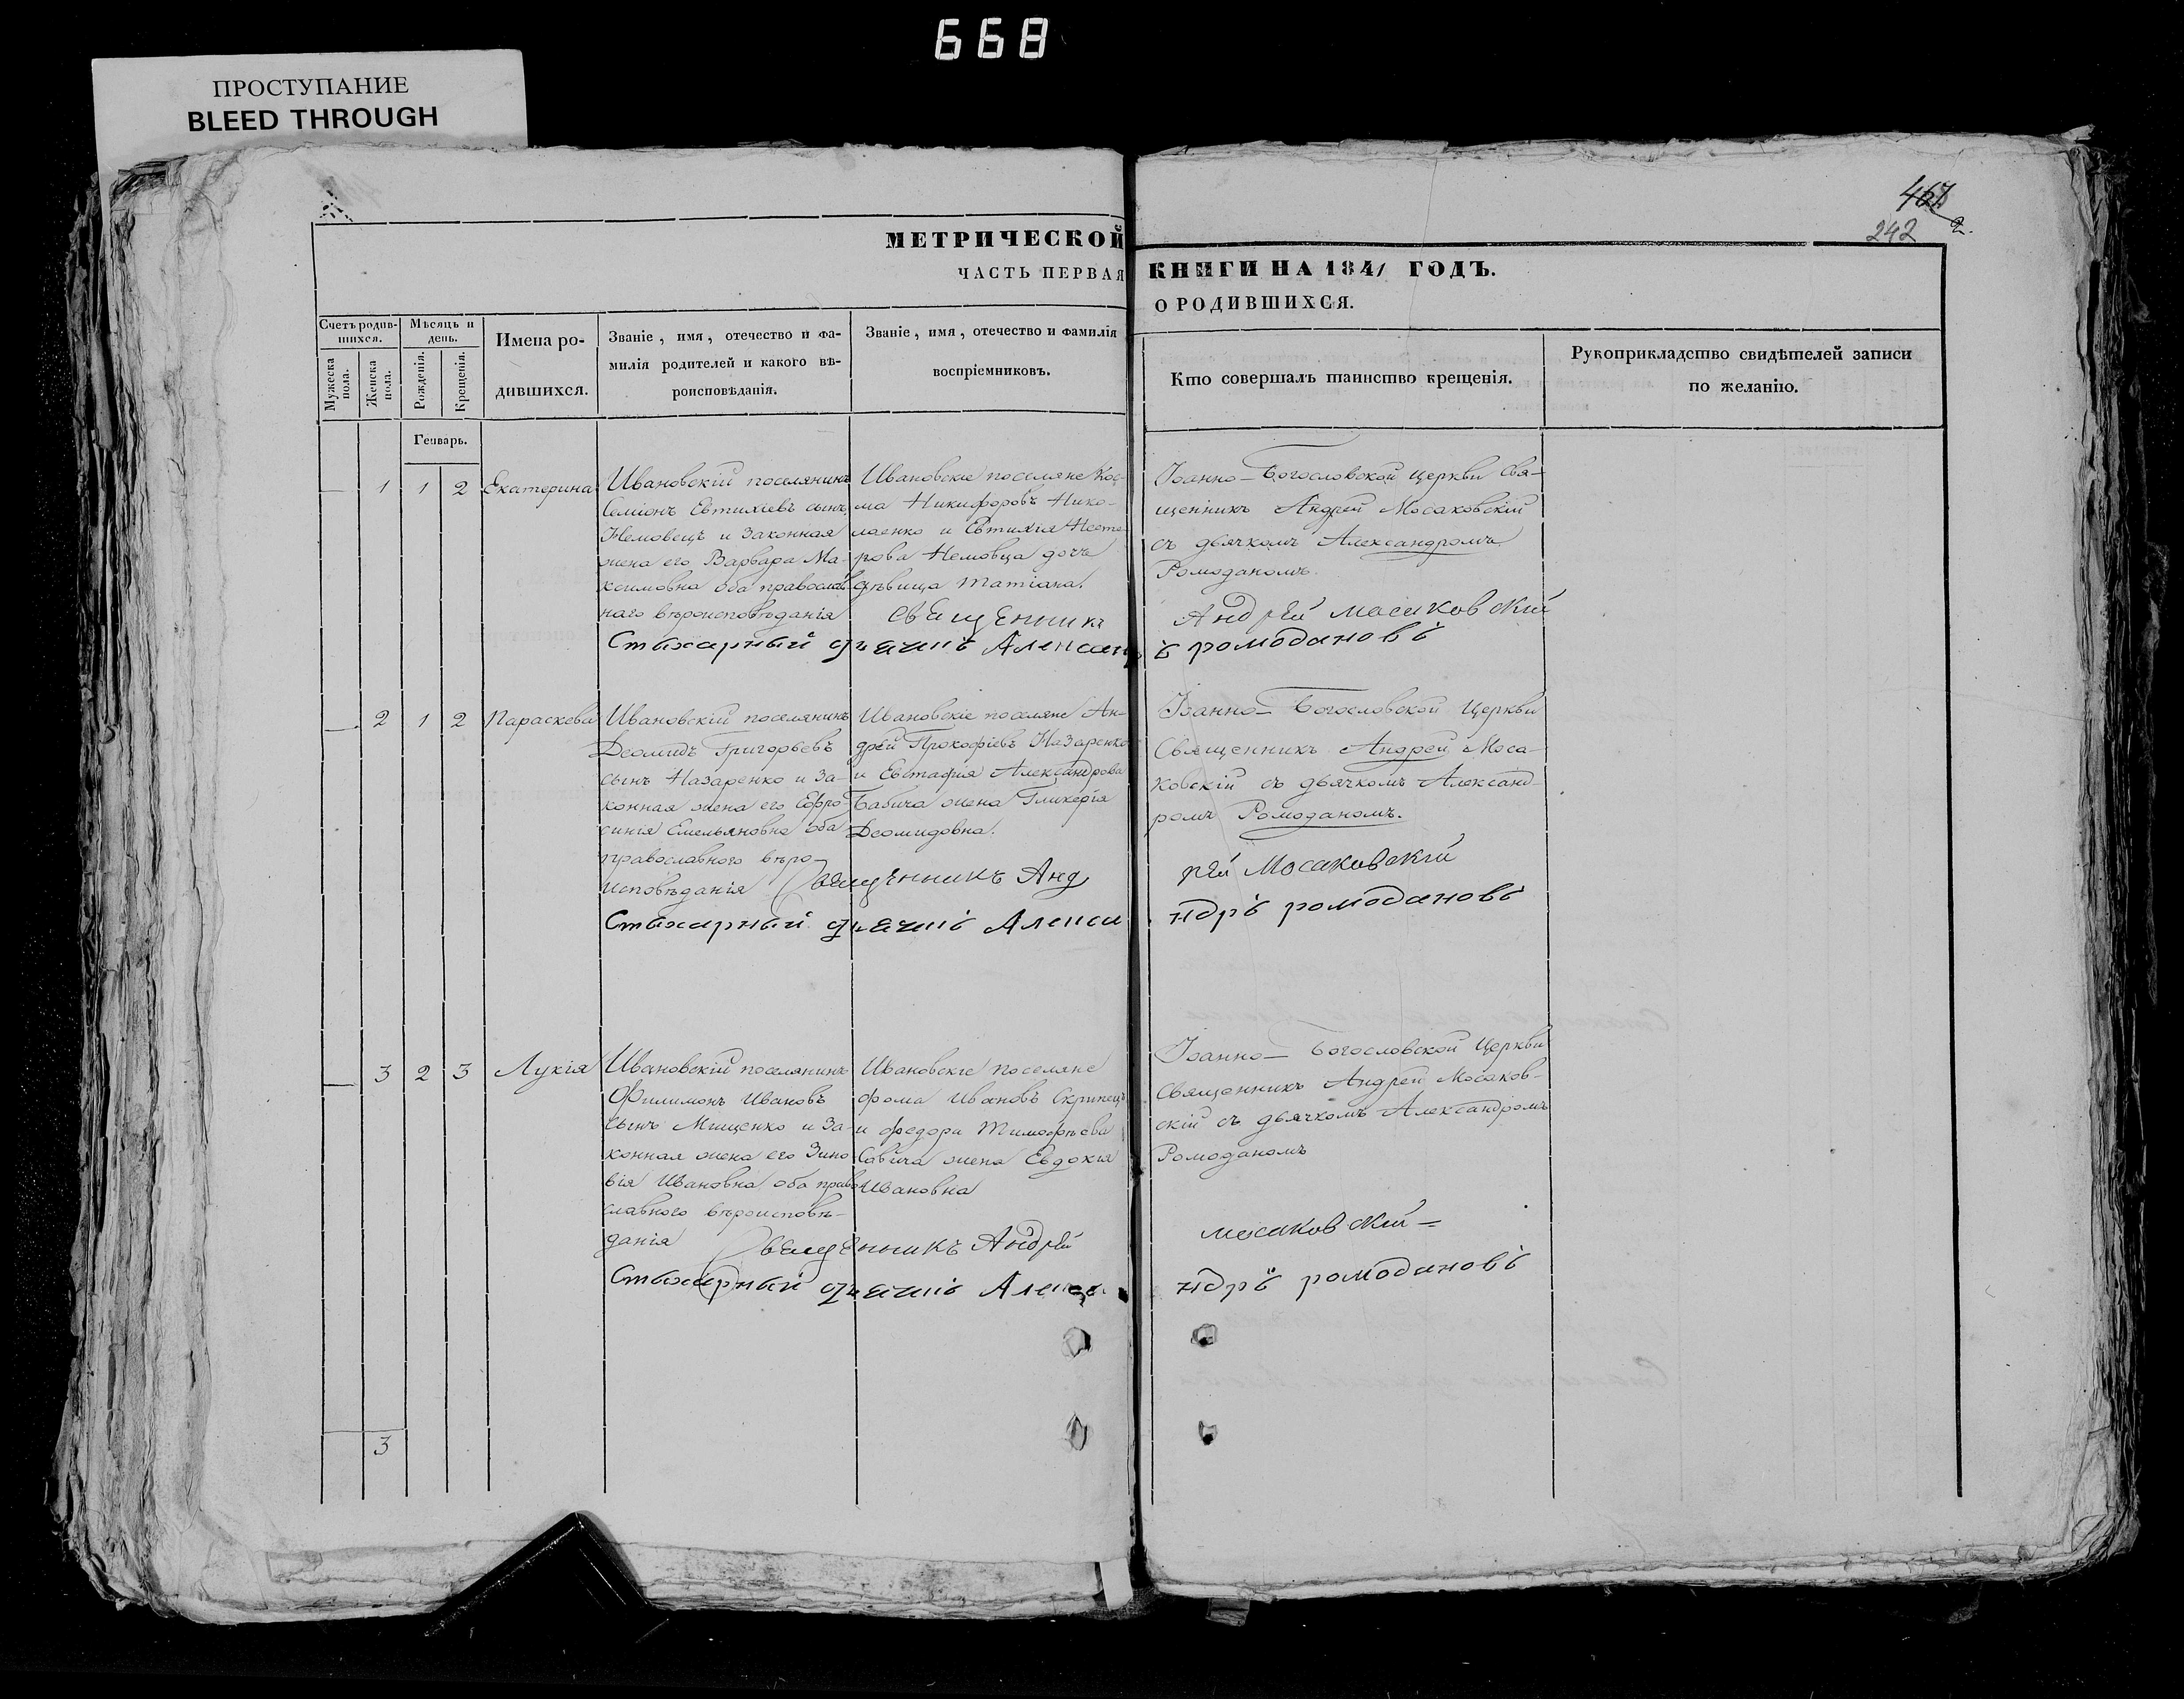 668
ПРОСТУПАНИЕ
BLEED THROUGH
467
2.
242
МЕТРИЧЕСКОЙ КНИГИ НА 1841 ГОДЪ.
ЧАСТЬ ПЕРВАЯ О РОДИВШИХСЯ.
Счетъ родив-
шихся.
Мужеска
пола.
Женска
пола.
Мѣсяцъ и
день.
Рожденія.
Крещенія.
Имена ро-
дившихся.
Званіе, имя, отечество и фа-
милія родителей и какого вѣ-
роисповѣданія.
Званіе, имя, отечество и фамилія
воспріемниковъ.
Кто совершалъ таинство крещенія.
Рукоприкладство свидѣтелей записи
по желанію.
Генварь.
— 1 1 2 Екатерина
Ивановскій поселянинъ
Семіонъ Евтихіевъ сынъ
Немовецъ и законная
жена его Варвара Ма-
ксимовна оба православ
наго вѣроисповѣданія
Ивановскіе поселяне Кос-
ма Никифоровъ Нико-
лаенко и Евтихія Несте-
рова Немовца дочь
дѣвица Татіана.
Іоанно-Богословской церкви Свя-
щенникъ Андрей Мосаковскій
съ дьячкомъ Александромъ
Ромоданомъ.
Священникъ Андрей Мосаковскій
Стихарный дьячикъ Александръ ромодановъ
— 2 1 2 Параскева
Ивановскій поселянинъ
Деомидъ Григорьевъ
сынъ Назаренко и за-
конная жена его Ефро-
синія Емельяновна оба
православного вѣро-
исповѣданія
Ивановскіе поселяне Ан-
дрей Прокофіевъ Назаренко
и Евстафія Александрова
Бабича жена Гликерія
Деомидовна.
Іоанно-Богословской Церкви
Священникъ Андрей Моса-
ковскій съ дьячкомъ Александ-
ромъ Ромоданомъ.
Священникъ Андрей Мосаковскій
Стихарный дьячикъ Александръ ромодановъ
— 3 2 3 Лукія
Ивановскій поселянинъ
Филимонъ Ивановъ
сынъ Мищенко и за-
конная жена его Зино-
вія Ивановна оба право
славного вѣроисповѣ-
данія
Ивановскіе поселяне
Фома Ивановъ Скрипецъ
и федора Тимофѣева
Савича жена Евдокія
Ивановна
Іоанно-Богословской Церкви
Священникъ Андрей Мосаков-
скій съ дьячкомъ Александромъ
Ромоданомъ
Священникъ Андрей мосаковскій
Стихарный дьячикъ Александръ ромодановъ
3